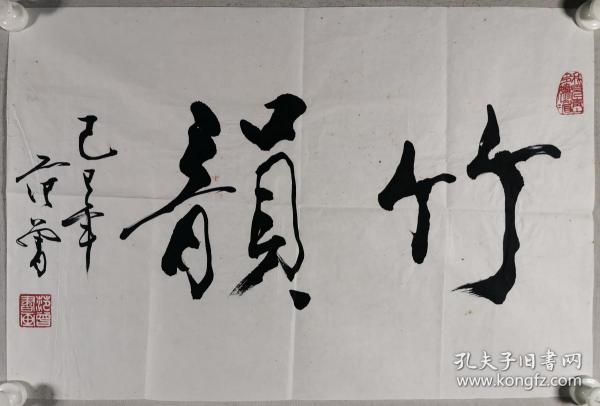 竹韻
己巳年
范曾
孔夫子旧书网
www.kongfz.com